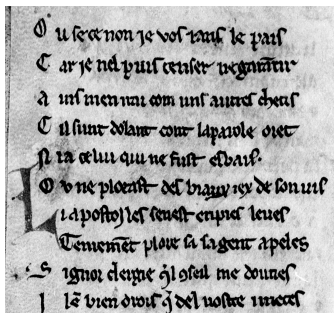 O u se ce non ie vos rans le pais
C ar ie nel puis tenser ne garantir
A ins men irai com uns autres chetis
C il sunt dolant cont la parole oret
N i a celui qui ne fust esbais.
O u ne plorast des biaux iex de son vis
L i apostoiles sen est en pies leues
Tenrement plore sa sa gent apeles
S ignor clergie q̃l 9seil me donres
I l est bien drois q̃ del vostre i metes